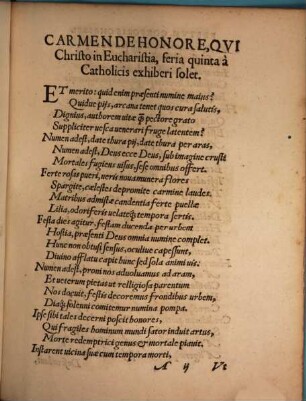 CARMEN DE HONORE, QVI
Christo in Eucharistia, feria quinta à
Catholicis exhiberi solet.
ET merito: quid enim præsenti numine maius?
Quidue pijs, arcana tenet quos cura salutis,
Dignius, authorem uitæ q̃ pectore grato
Suppliciter uesca uenerari fruge latentem?
Numen adest, date thura pij, date thura per aras,
Numen adest, Deus ecce Deus, sub imagine crusti
Mortales fugiens uisus, sese omnibus offert.
Ferte rosas pueri, ueris noua munera flores
Spargite, cælestes depromite carmine laudes.
Matribus admistæ candentia ferte puellæ
Lilia, odoriferis uelatęq́; tempora sertis.
Festa dies agitur, festam ducenda per urbem
Hostia, præsenti Deus omnia numine complet.
Hunc non obtusi sensus, oculiue capessunt,
Diuino afflatu capit hunc sed sola animi uis:
Numen adest, proni nos aduoluamus ad aram,
Et ueterum pietas ut relligiosa parentum
Nos docuit, festis decoremus frondibus urbem,
Diaq́; solenni comitemur numina pompa.
Ipse sibi tales decerni poscit honores,
Qui fragiles hominum mundi sator induit artus,
Morte redemptrici genus & mortale piauit.
Instarent uicina suæ cum tempora morti,
A ij Vt